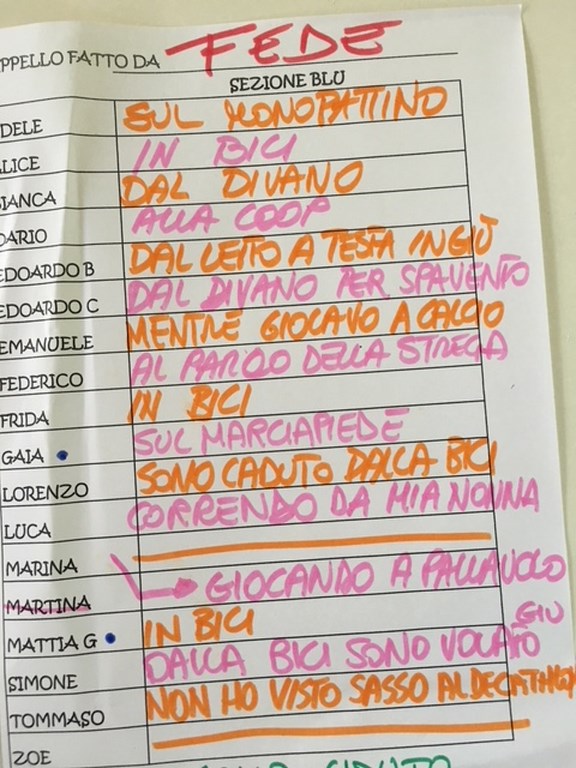 PPELLO FATTO DA FEDE
SEZIONE BLU
DELE SUL MONOPATTINO
LICE IN BICI
IANCA DAL DIVANO
DARIO ALLA COOP
EDOARDO B DAL LETTO A TESTA IN GIÙ
EDOARDO C DAL DIVANO PER SPAVENTO
EMANUELE MENTRE GIOCAVO A CALCIO
FEDERICO AL PARCO DELLA STREGA
FRIDA IN BICI
GAIA SUL MARCIAPIEDE
LORENZO SONO CADUTO DALLA BICI
LUCA CORRENDO DA MIA NONNA
MARINA
MARTINA GIOCANDO A PALLAVOLO
MATTIA G IN BICI
SIMONE DALLA BICI SONO VOLATO GIÙ
TOMMASO NON HO VISTO SASSO AL DECATHLON
ZOE